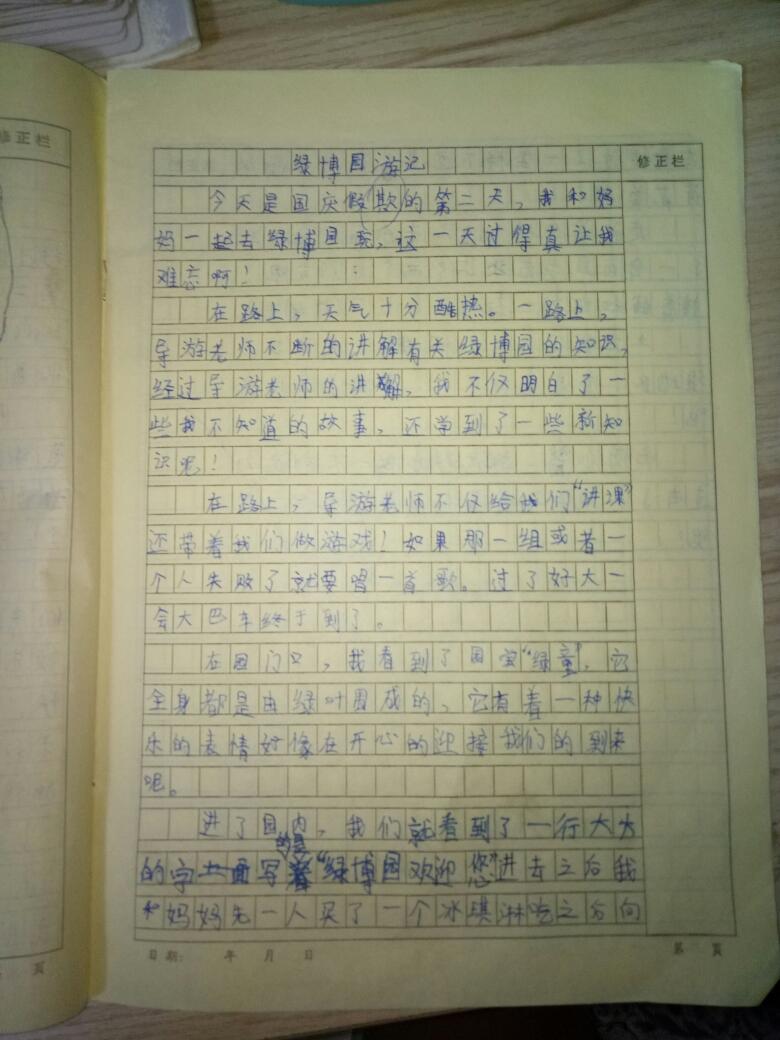 修正栏
绿博园游记
修正栏
今天是国庆假期的第二天，我和妈
妈一起去绿博园玩，这一天过得真让我
难忘啊！
在路上，天气十分酷热。一路上，
导游老师不断的讲解有关绿博园的知识，
经过导游老师的讲解，我不仅明白了一
些我不知道的故事，还学到了一些新知
识呢！
在路上，导游老师不仅给我们“讲课”
还带着我们做游戏！如果那一组或者一
个人失败了就要唱一首歌。过了好大一
会大巴车终于到了。
在园门口，我看到了园宝“绿童”，它
全身都是由绿叶围成的，它有着一种快
乐的表情好像在开心的迎接我们的到来
呢。
进了园内，我们就看到了一行大大
的字上面写的是“绿博园欢迎您”进去之后我
和妈妈先一人买了一个冰琪淋吃之后向
日期： 年 月 日
第 页
页